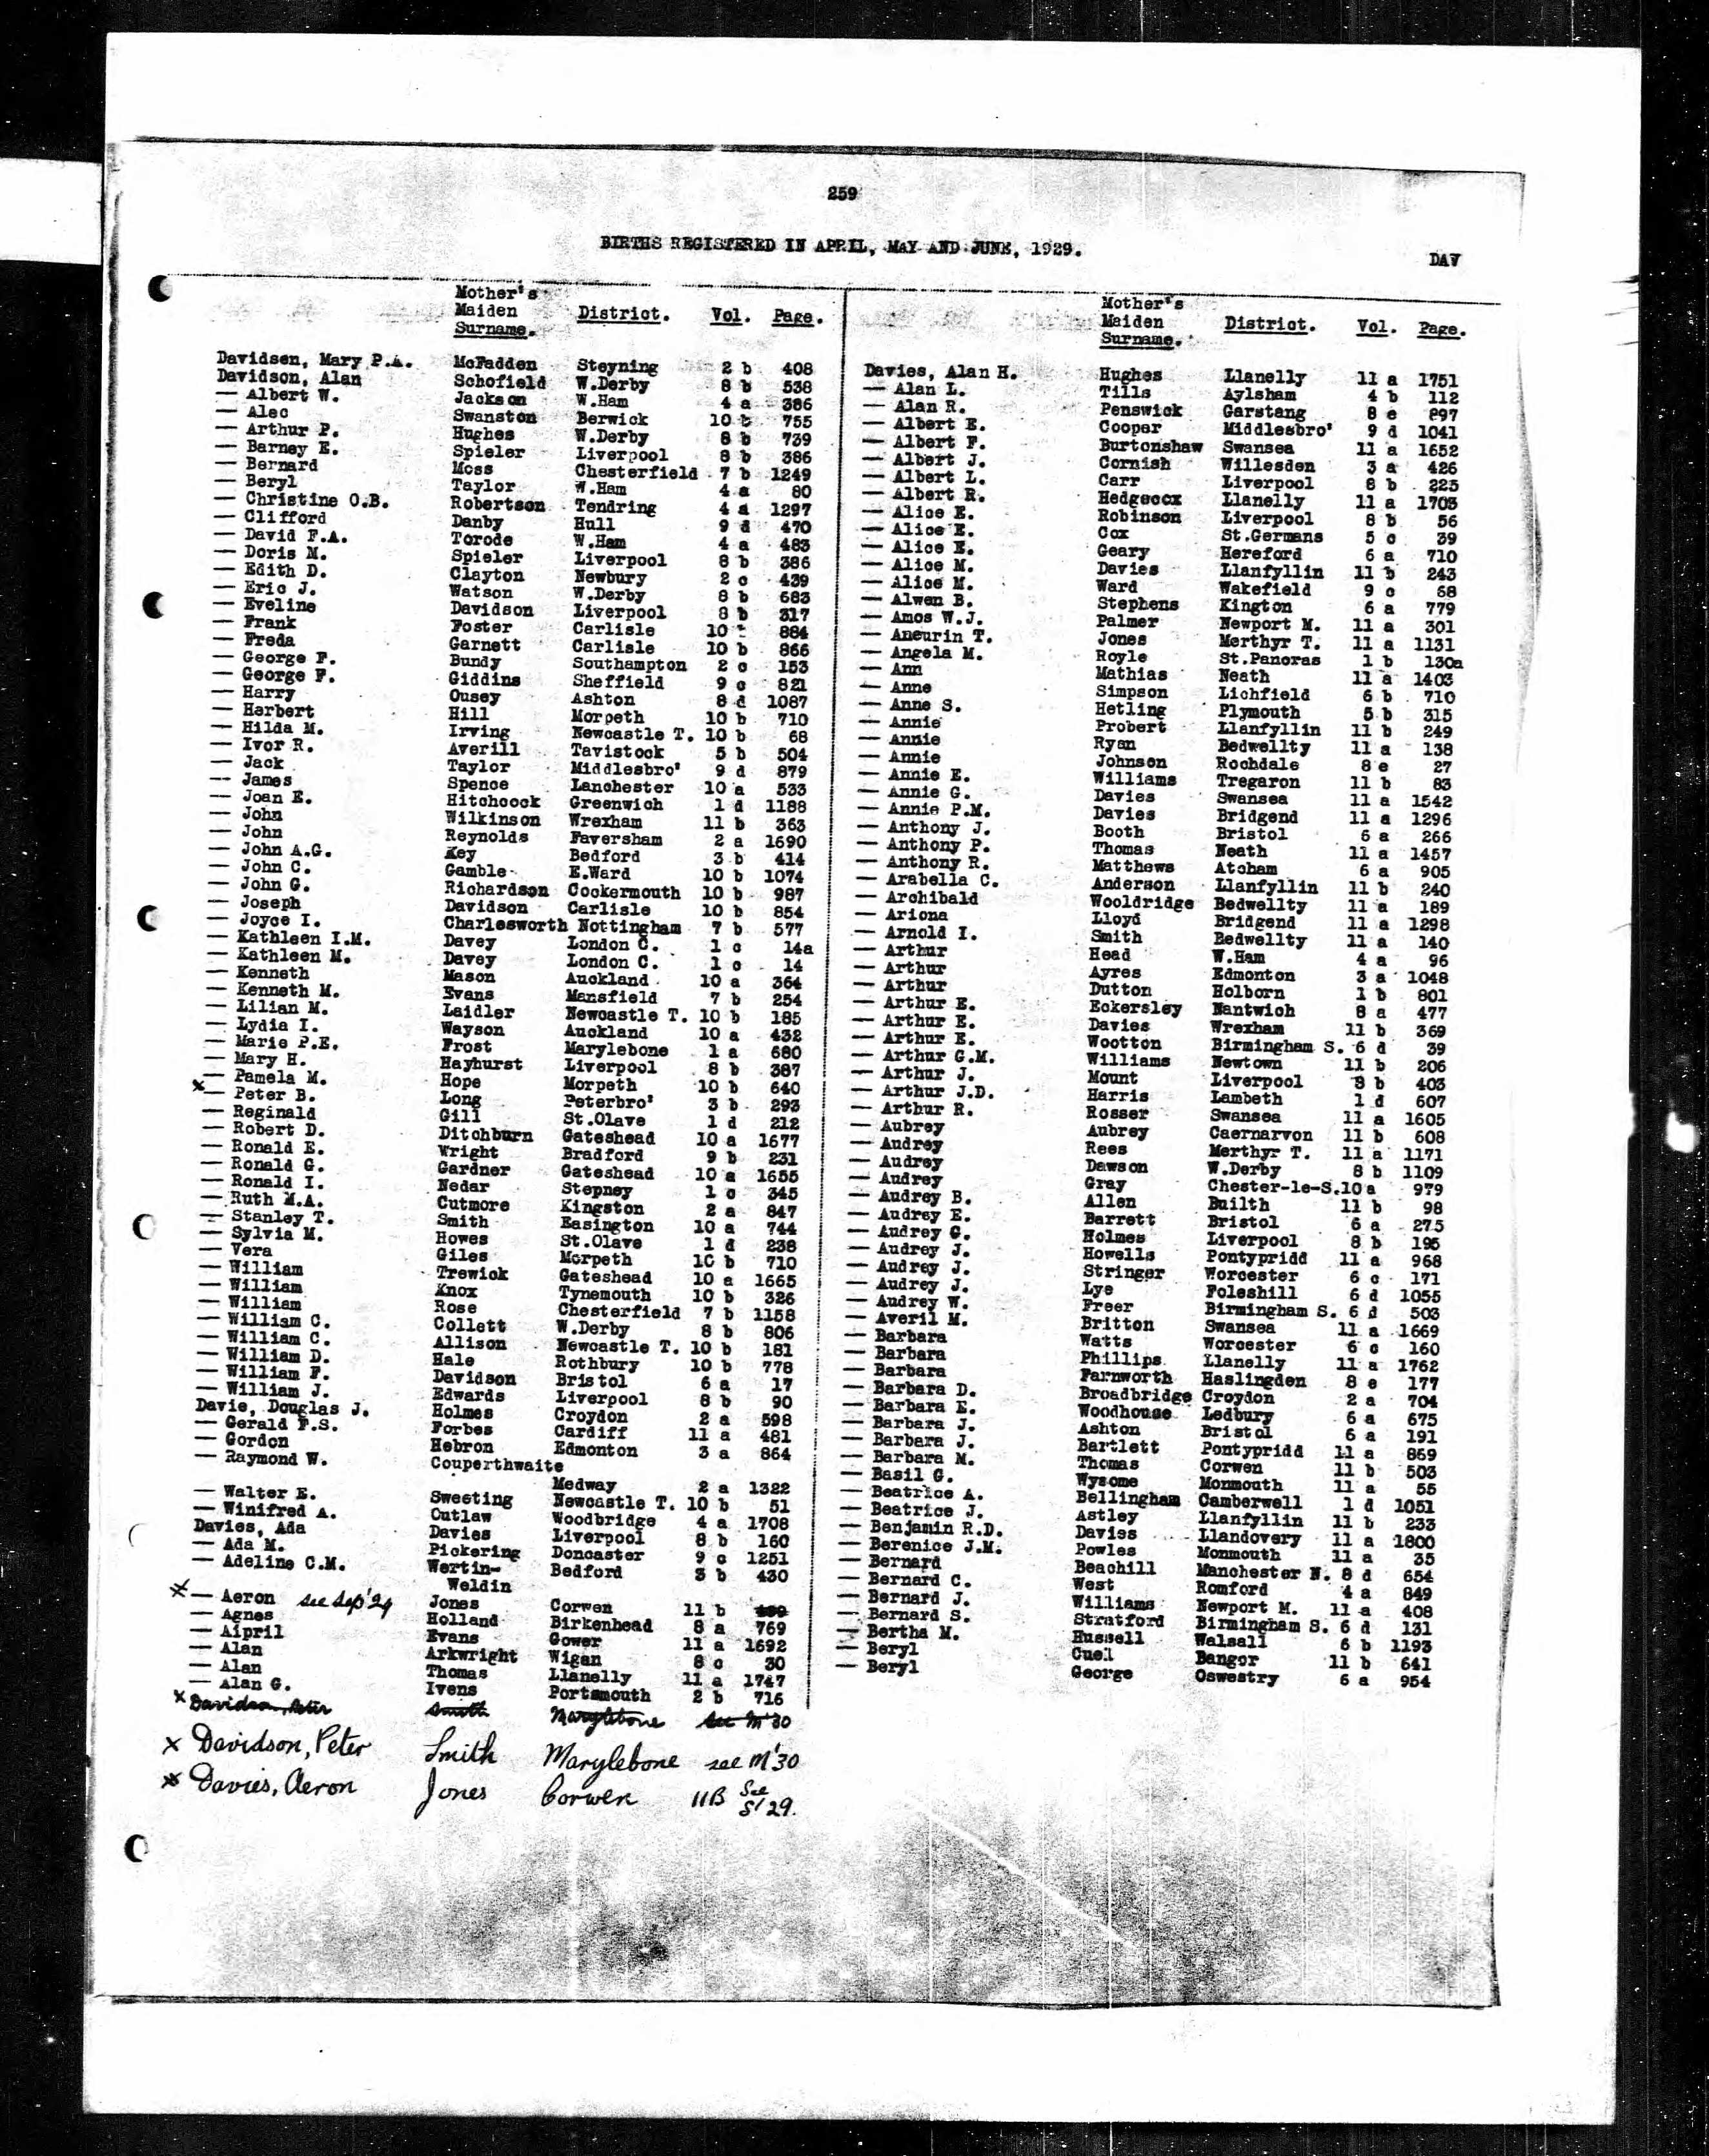 259
BIRTHS REGISTERED IN APRIL, MAY AND JUNE, 1929.
DAV
Mother's
Maiden District. Vol. Page.
Surname.
Davidsen, Mary P.A. McFadden Steyning 2 b 408
Davidson, Alan Schofield W.Derby 8 b 538
— Albert W. Jackson W.Ham 4 a 386
— Alec Swanston Berwick 10 b 755
— Arthur P. Hughes W.Derby 8 b 739
— Barney E. Spieler Liverpool 8 b 386
— Bernard Moss Chesterfield 7 b 1249
— Beryl Taylor W.Ham 4 a 80
— Christine O.B. Robertson Tendring 4 a 1297
— Clifford Danby Hull 9 d 470
— David F.A. Torode W.Ham 4 a 483
— Doris M. Spieler Liverpool 8 b 386
— Edith D. Clayton Newbury 2 c 439
— Eric J. Watson W.Derby 8 b 683
— Eveline Davidson Liverpool 8 b 317
— Frank Foster Carlisle 10 884
— Freda Garnett Carlisle 10 b 866
— George F. Bundy Southampton 2 c 153
— George F. Giddins Sheffield 9 c 821
— Harry Ousey Ashton 8 d 1087
— Herbert Hill Morpeth 10 b 710
— Hilda M. Irving Newcastle T. 10 b 68
— Ivor R. Averill Tavistock 5 b 504
— Jack Taylor Middlesbro' 9 d 879
— James Spence Lanchester 10 a 533
— Joan E. Hitchcock Greenwich 1 d 1188
— John Wilkinson Wrexham 11 b 363
— John Reynolds Faversham 2 a 1690
— John A.G. Key Bedford 3 b 414
— John C. Gamble E.Ward 10 b 1074
— John G. Richardson Cockermouth 10 b 987
— Joseph Davidson Carlisle 10 b 854
— Joyce I. Charlesworth Nottingham 7 b 577
— Kathleen I.M. Davey London C. 1 c 14a
— Kathleen M. Davey London C. 1 c 14
— Kenneth Mason Auckland 10 a 364
— Kenneth M. Evans Mansfield 7 b 254
— Lilian M. Laidler Newcastle T. 10 b 185
— Lydia I. Wayson Auckland 10 a 432
— Marie P.E. Frost Marylebone 1 a 680
— Mary H. Hayhurst Liverpool 8 b 387
— Pamela M. Hope Morpeth 10 b 640
x — Peter B. Long Peterbro' 3 b 293
— Reginald Gill St.Olave 1 d 212
— Robert D. Ditchburn Gateshead 10 a 1677
— Ronald E. Wright Bradford 9 b 231
— Ronald G. Gardner Gateshead 10 a 1655
— Ronald I. Nedar Stepney 1 c 345
— Ruth M.A. Cutmore Kingston 2 a 847
— Stanley T. Smith Easington 10 a 744
— Sylvia M. Howes St.Olave 1 d 238
— Vera Giles Morpeth 10 b 710
— William Trewick Gateshead 10 a 1665
— William Knox Tynemouth 10 b 326
— William Rose Chesterfield 7 b 1158
— William C. Collett W.Derby 8 b 806
— William C. Allison Newcastle T. 10 b 181
— William D. Hale Rothbury 10 b 778
— William F. Davidson Bristol 6 a 17
— William J. Edwards Liverpool 8 b 90
Davie, Douglas J. Holmes Croydon 2 a 598
— Gerald F.S. Forbes Cardiff 11 a 481
— Gordon Hebron Edmonton 3 a 864
— Raymond W. Couperthwaite
Medway 2 a 1322
— Walter E. Sweeting Newcastle T. 10 b 51
— Winifred A. Outlaw Woodbridge 4 a 1708
Davies, Ada Davies Liverpool 8 b 160
— Ada M. Pickering Doncaster 9 c 1251
— Adeline C.M. Wertin- Bedford 3 b 430
Weldin
x — Aeron see Sep'29 Jones Corwen 11 b
— Agnes Holland Birkenhead 8 a 769
— Aipril Evans Gower 11 a 1692
— Alan Arkwright Wigan 8 c 30
— Alan Thomas Llanelly 11 a 1747
— Alan G. Ivens Portsmouth 2 b 716
x Davidson, Peter Smith Marylebone see M'30
x Davidson, Peter Smith Marylebone see M'30
x Davies, Aeron Jones Corwen 11B See S'29.
Mother's
Maiden District. Vol. Page.
Surname.
Davies, Alan H. Hughes Llanelly 11 a 1751
— Alan L. Tills Aylsham 4 b 112
— Alan R. Penswick Garstang 8 e 897
— Albert E. Cooper Middlesbro' 9 d 1041
— Albert F. Burtonshaw Swansea 11 a 1652
— Albert J. Cornish Willesden 3 a 426
— Albert L. Carr Liverpool 8 b 225
— Albert R. Hedgecox Llanelly 11 a 1703
— Alice E. Robinson Liverpool 8 b 56
— Alice E. Cox St.Germans 5 c 39
— Alice E. Geary Hereford 6 a 710
— Alice M. Davies Llanfyllin 11 b 243
— Alice M. Ward Wakefield 9 c 68
— Alwen B. Stephens Kington 6 a 779
— Amos W.J. Palmer Newport M. 11 a 301
— Aneurin T. Jones Merthyr T. 11 a 1131
— Angela M. Royle St.Pancras 1 b 130a
— Ann Mathias Neath 11 a 1403
— Anne Simpson Lichfield 6 b 710
— Anne S. Hetling Plymouth 5 b 315
— Annie Probert Llanfyllin 11 b 249
— Annie Ryan Bedwellty 11 a 138
— Annie Johnson Rochdale 8 e 27
— Annie E. Williams Tregaron 11 b 83
— Annie G. Davies Swansea 11 a 1542
— Annie P.M. Davies Bridgend 11 a 1296
— Anthony J. Booth Bristol 6 a 266
— Anthony P. Thomas Neath 11 a 1457
— Anthony R. Matthews Atcham 6 a 905
— Arabella C. Anderson Llanfyllin 11 b 240
— Archibald Wooldridge Bedwellty 11 a 189
— Ariona Lloyd Bridgend 11 a 1298
— Arnold I. Smith Bedwellty 11 a 140
— Arthur Head W.Ham 4 a 96
— Arthur Ayres Edmonton 3 a 1048
— Arthur Dutton Holborn 1 b 801
— Arthur E. Eckersley Nantwich 8 a 477
— Arthur E. Davies Wrexham 11 b 369
— Arthur E. Wootton Birmingham S. 6 d 39
— Arthur G.M. Williams Newtown 11 b 206
— Arthur J. Mount Liverpool 8 b 403
— Arthur J.D. Harris Lambeth 1 d 607
— Arthur R. Rosser Swansea 11 a 1605
— Aubrey Aubrey Caernarvon 11 b 608
— Audrey Rees Merthyr T. 11 a 1171
— Audrey Dawson W.Derby 8 b 1109
— Audrey Gray Chester-le-S.10 a 979
— Audrey B. Allen Builth 11 b 98
— Audrey E. Barrett Bristol 6 a 275
— Audrey G. Holmes Liverpool 8 b 195
— Audrey J. Howells Pontypridd 11 a 968
— Audrey J. Stringer Worcester 6 c 171
— Audrey J. Lye Foleshill 6 d 1055
— Audrey W. Freer Birmingham S. 6 d 503
— Averil M. Britton Swansea 11 a 1669
— Barbara Watts Worcester 6 c 160
— Barbara Phillips Llanelly 11 a 1762
— Barbara Farnworth Haslingden 8 e 177
— Barbara D. Broadbridge Croydon 2 a 704
— Barbara E. Woodhouse Ledbury 6 a 675
— Barbara J. Ashton Bristol 6 a 191
— Barbara J. Bartlett Pontypridd 11 a 869
— Barbara M. Thomas Corwen 11 b 503
— Basil G. Wysome Monmouth 11 a 55
— Beatrice A. Bellingham Camberwell 1 d 1051
— Beatrice J. Astley Llanfyllin 11 b 233
— Benjamin R.D. Davies Llandovery 11 a 1800
— Berenice J.M. Powles Monmouth 11 a 35
— Bernard Beachill Manchester N. 8 d 654
— Bernard C. West Romford 4 a 849
— Bernard J. Williams Newport M. 11 a 408
— Bernard S. Stratford Birmingham S. 6 d 131
— Bertha M. Hussell Walsall 6 b 1193
— Beryl Cuell Bangor 11 b 641
— Beryl George Oswestry 6 a 954